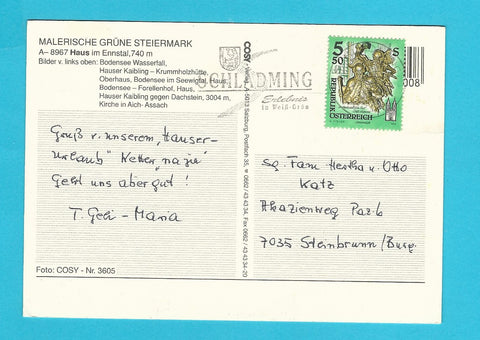 MALERISCHE GRÜNE STEIERMARK
A– 8967 Haus im Ennstal, 740 m
Bilder v. links oben: Bodensee Wasserfall,
Hauser Kaibling – Krummholzhütte,
Oberhaus, Bodensee im Seewigtal, Haus,
Bodensee – Forellenhof, Haus,
Hauser Kaibling gegen Dachstein, 3004 m,
Kirche in Aich- Assach
Gruß v. unserem "Hauser-
urlaub" Wetter na je"
Geht uns aber gut!
T. Geli – Maria
Foto: COSY - Nr. 3605
COSY - Verlag, A-5013 Salzburg, Postfach 35, 0662 / 43 43 34, Fax 0662 / 43 43 34-20
SCHLADMING
Erlebnis
in Weiß-Grün
5 S
50
REPUBLIK
ÖSTERREICH
008
Sg. Fam Hertha u. Otto
Katz
Akazienweg Parz. 6
7035 Steinbrunn / Burg.